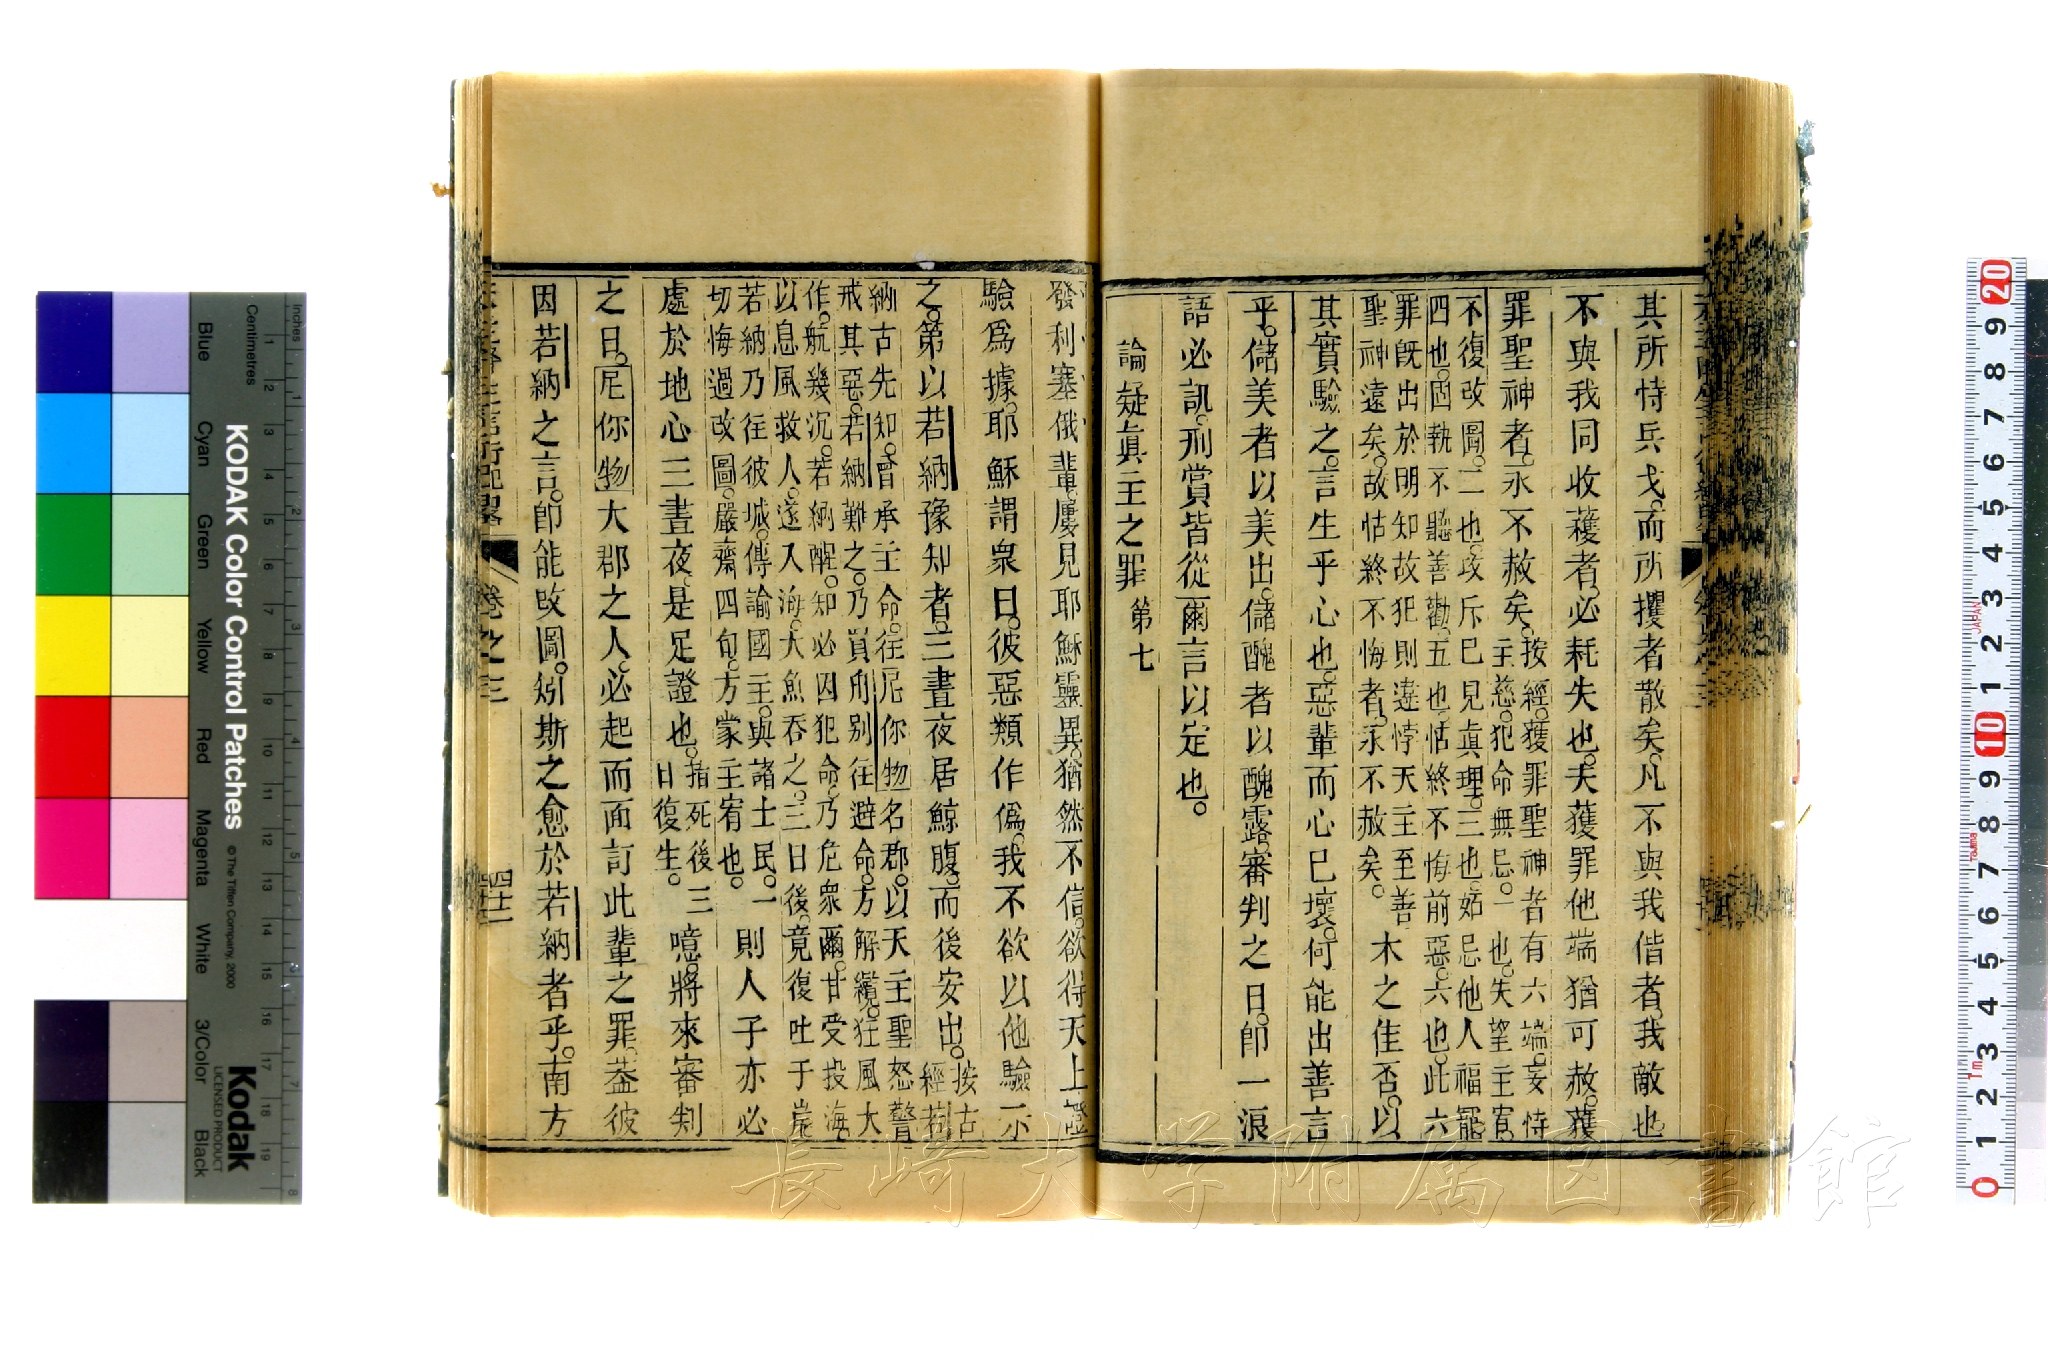 其所恃兵戈。而所攫者散矣。凡不與我偕者。我敵也
不與我同收穫者。必耗失也。夫獲罪他端猶可赦。獲
罪聖神者。永不赦矣。按經。獲罪聖神者有六端。妄恃
主慈。犯命無忌。一也。失望主宥。
不復改圖。二也。攻斥已見眞理。三也。妬忌他人福寵。
四也。固執不聽善勸。五也。怙終不悔前惡。六也。此六
罪旣出於明知故犯則違悖天主至善
聖神遠矣。故怙終不悔者。永不赦矣。木之佳否。以
其實驗之。言生乎心也。惡輩而心已壞。何能出善言
乎。儲美者以美出。儲醜者以醜露。審判之日。卽一浪
語必訊。刑賞皆從爾言以定也。
論疑眞主之罪 第七
發利塞俄輩。屢見耶穌靈異。猶然不信。欲得天上證
驗爲據。耶穌謂衆曰。彼惡類作僞。我不欲以他驗示
之。第以若納豫知者。三晝夜居鯨腹。而後安出。按古
經。若
納古先知。曾承主命。往尼你物名郡。以天主聖怒警
戒其惡。若納難之。乃買舟别往避命。方解纜。狂風大
作。航幾沉。若納醒。知必因犯命。乃危衆爾。甘受投海。
以息風救人。遂入海。大魚吞之。三日後。竟復吐于岸
若納乃往彼城。傳諭國主。與諸士民。一
切悔過改圖。嚴齋四旬。方蒙主宥也。則人子亦必
處於地心三晝夜。是足證也。指死後三
日復生。噫。將來審判
之日。尼你物大郡之人。必起而面訂此輩之罪。葢彼
因若納之言。卽能改圖。矧斯之愈於若納者乎。南方
卷之三
四十二
KODAK Color Control Patches
© The Tiffen Company, 2000
Kodak
LICENSED PRODUCT
Inches
Centimetres
Blue
Cyan
Green
Yellow
Red
Magenta
White
3/Color
Black
長崎大学附属図書館
JAPAN